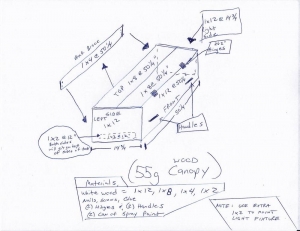 1x12 @ 19¼
Right
Side
Back Piece
1x4 @ 50¼"
Hinges
TOP 1x8 @ 50¼"
1x8 @ 50¼"
1x12 @ 50¼"
SIDE
LEFT
1x12
FRONT
Handles
1x2 @ 12"
Both sides
19¼
55g WOOD
Canopy
Materials
White wood = 1x12, 1x8, 1x4, 1x2
Nails, Screws, Glue
(2) Hinges & (2) Handles
(2) Can of Spray Paint
NOTE: USE EXTRA
1x2 TO MOUNT
LIGHT FIXTURE